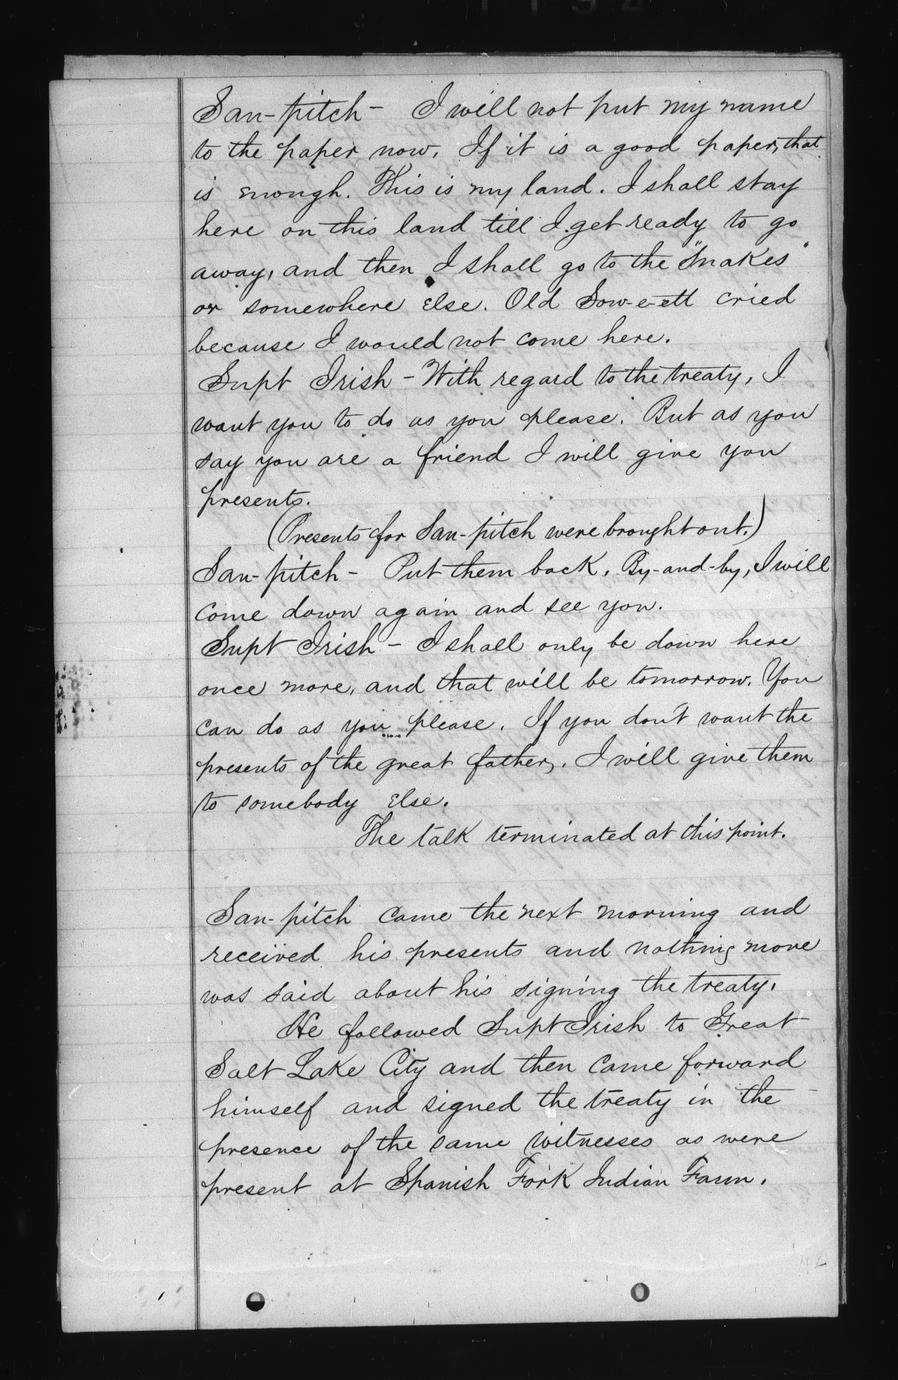 San-pitch – I will not put my name
to the paper now. If it is a good paper, that
is enough. This is my land. I shall stay
here on this land till I get ready to go
away, and then I shall go to the "Snakes"
or somewhere else. Old Sow-e-ett cried
because I would not come here.
Supt Irish – With regard to the treaty, I
want you to do as you please. But as you
say you are a friend I will give you
presents.
(Presents for San-pitch were brought out.)
San-pitch – Put them back. By-and-by, I will
come down again and see you.
Supt Irish – I shall only be down here
once more, and that will be tomorrow. You
can do as you please. If you don't want the
presents of the great father, I will give them
to somebody else.
The talk terminated at this point.
San-pitch came the next morning and
received his presents and nothing more
was said about his signing the treaty.
He followed Supt Irish to Great
Salt Lake City and then came forward
himself and signed the treaty in the
presence of the same witnesses as were
present at Spanish Fork Indian Farm.